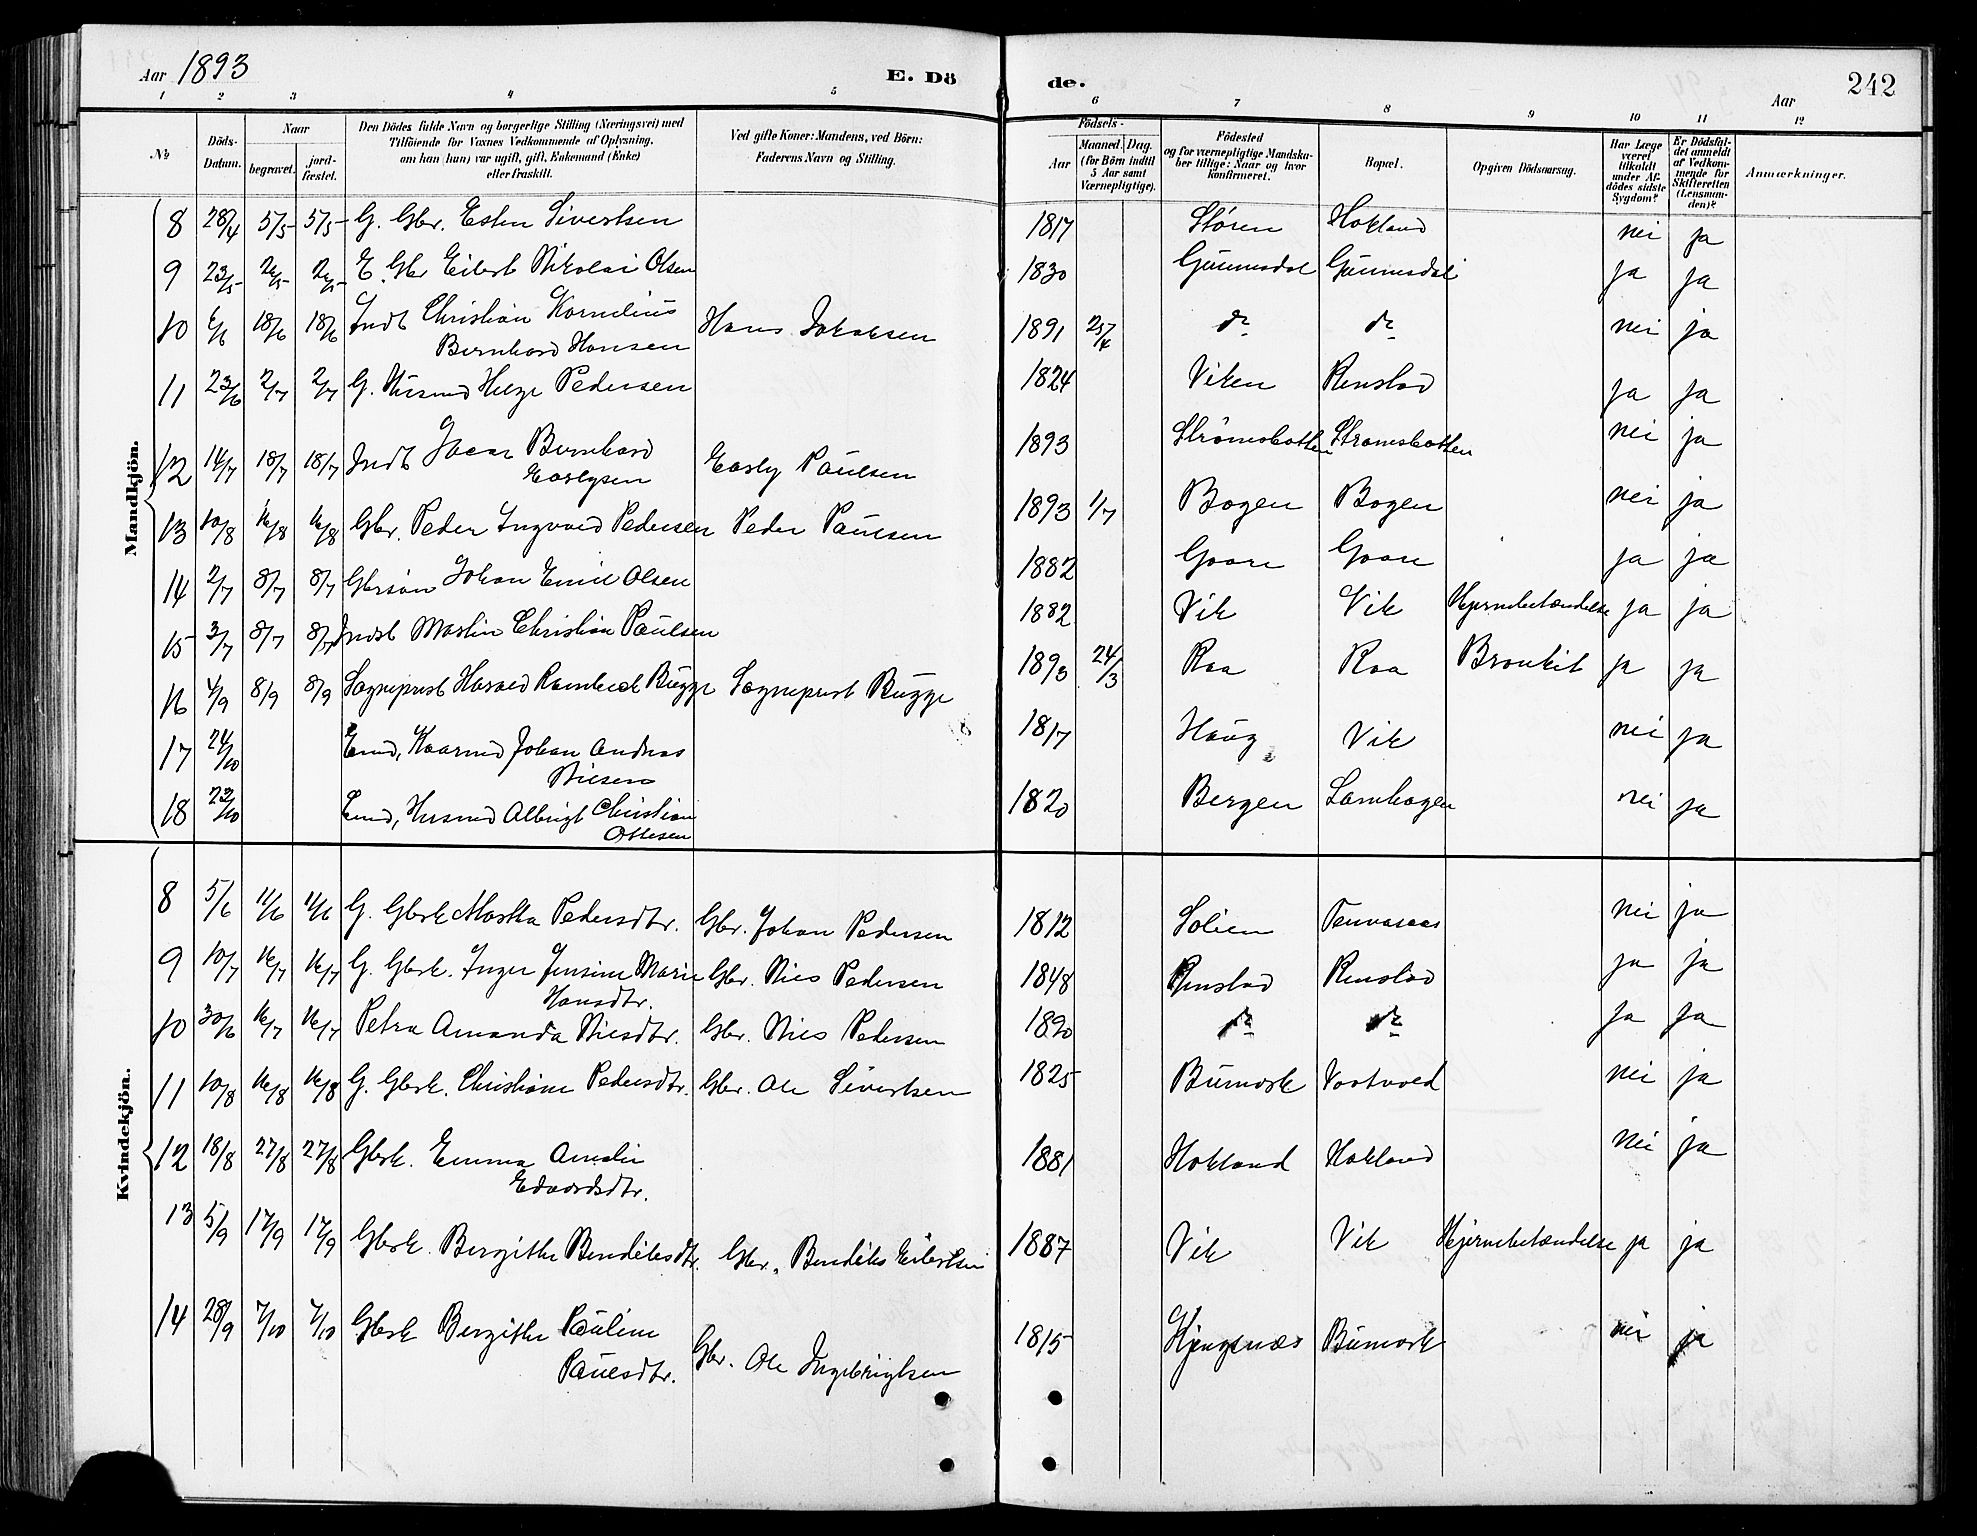 Aar 1893
E. Dö
de.
Aar
242
1 2 3 4 5 6 7 8 9 10 11 12
No
Döds-Datum.
Naar
begravet.
jord-fæstet.
Den Dödes fulde Navn og borgerlige Stilling (Næringsvei) med
Tilföiende for Voxnes Vedkommende af Oplysning,
om han (hun) var ugift, gift, Enkemand (Enke)
eller fraskilt.
Ved gifte Koner: Mandens, ved Börn:
Faderens Navn og Stilling.
Födsels-
Aar
Maaned. Dag.
(for Börn indtil
5 Aar samt
Værnepligtige).
Födested
og for værnepligtige Mandska-
ber tillige: Naar og hvor
konfirmeret.
Bopæl.
Opgiven Dödsaarsag.
Har Læge
været
tilkaldt
under Af-
dödes sidste
Sygdom?
Er Dödsfal-
det anmeldt
af Vedkom-
mende for
Skifteretten
(Lensman-
den)?
Anmærkninger.
Mandkjön.
8 28/4 5/5 5/5 G. Gbr. Esten Sivertsen 1817 Støren Hokland nei ja
9 23/5 E. Gbr Eilert Nikolai Olsen 1830 Gunnesdal Gunnesdal ja ja
10 6/6 18/6 18/6 Indt Christian Kornelius
Bernhard Hansen Hans Jakobsen 1891 25/4 do do nei ja
11 23/6 2/7 2/7 G. Husmd Helge Pedersen 1824 Viken Renslad ja ja
12 14/7 18/7 18/7 Indt Bernhard
Earlysen Early Paulsen 1893 Strömsbotten Stromsbotten nei ja
13 10/8 16/8 16/8 Gbr. Peder Ingvald Pedersen Peder Paulsen 1893 1/7 Bogen Bogen nei ja
14 2/7 8/7 8/7 Gbrsön Johan Emil Olsen 1882 Gaare Gaare ja ja
15 3/7 8/7 8/7 Indst Martin Christian Paulsen 1882 Vik Vik Hjernebetændelse ja ja
16 4/9 8/9 8/9 Sogneprest Harald Bugge Sogneprest Bugge 1893 24/3 Raa Raa Bronkit ja ja
17 24/10 Emd, Kaarmd Johan Andreas
Nilsen 1817 Haug Vik nei ja
18 22/10 Emd, Husmd Albrigt Christian
Ottesen 1820 Bergen Lamhagen nei ja
Kvindekjön.
8 5/6 11/6 11/6 G. Gbrk Martha Pedersdtr. Gbr. Johan Pedersen 1812 Solien Tennvasaas nei ja
9 10/7 16/7 16/7 G. Gbrk. Inger Jensine Marie
Hansdtr. Gbr. Nils Pedersen 1848 Renslad Renslad ja ja
10 30/6 16/7 16/7 Petra Amanda Nilsdtr. Gbr. Nils Pedersen 1890 do do ja ja
11 10/8 16/8 16/8 G. Gbrk. Christiane Pedersdtr. Gbr. Ole Sivertsen 1825 Bumark Vootvold nei ja
12 18/8 27/8 27/8 Gbrk. Emma Amalie
Edvardsdtr. 1881 Hokland Hokland nei ja
13 5/9 17/9 17/9 Gbrk. Bergithe Bendiksdtr. Gbr. Bendiks Eilertsen 1887 Vik Vik Hjernebetændelse ja ja
14 28/9 7/10 7/10 Gbrk Bergithe Pauline
Paulsdtr. Gbr. Ole Ingebrigtsen 1815 Kjengsnæs Bumark nei ja